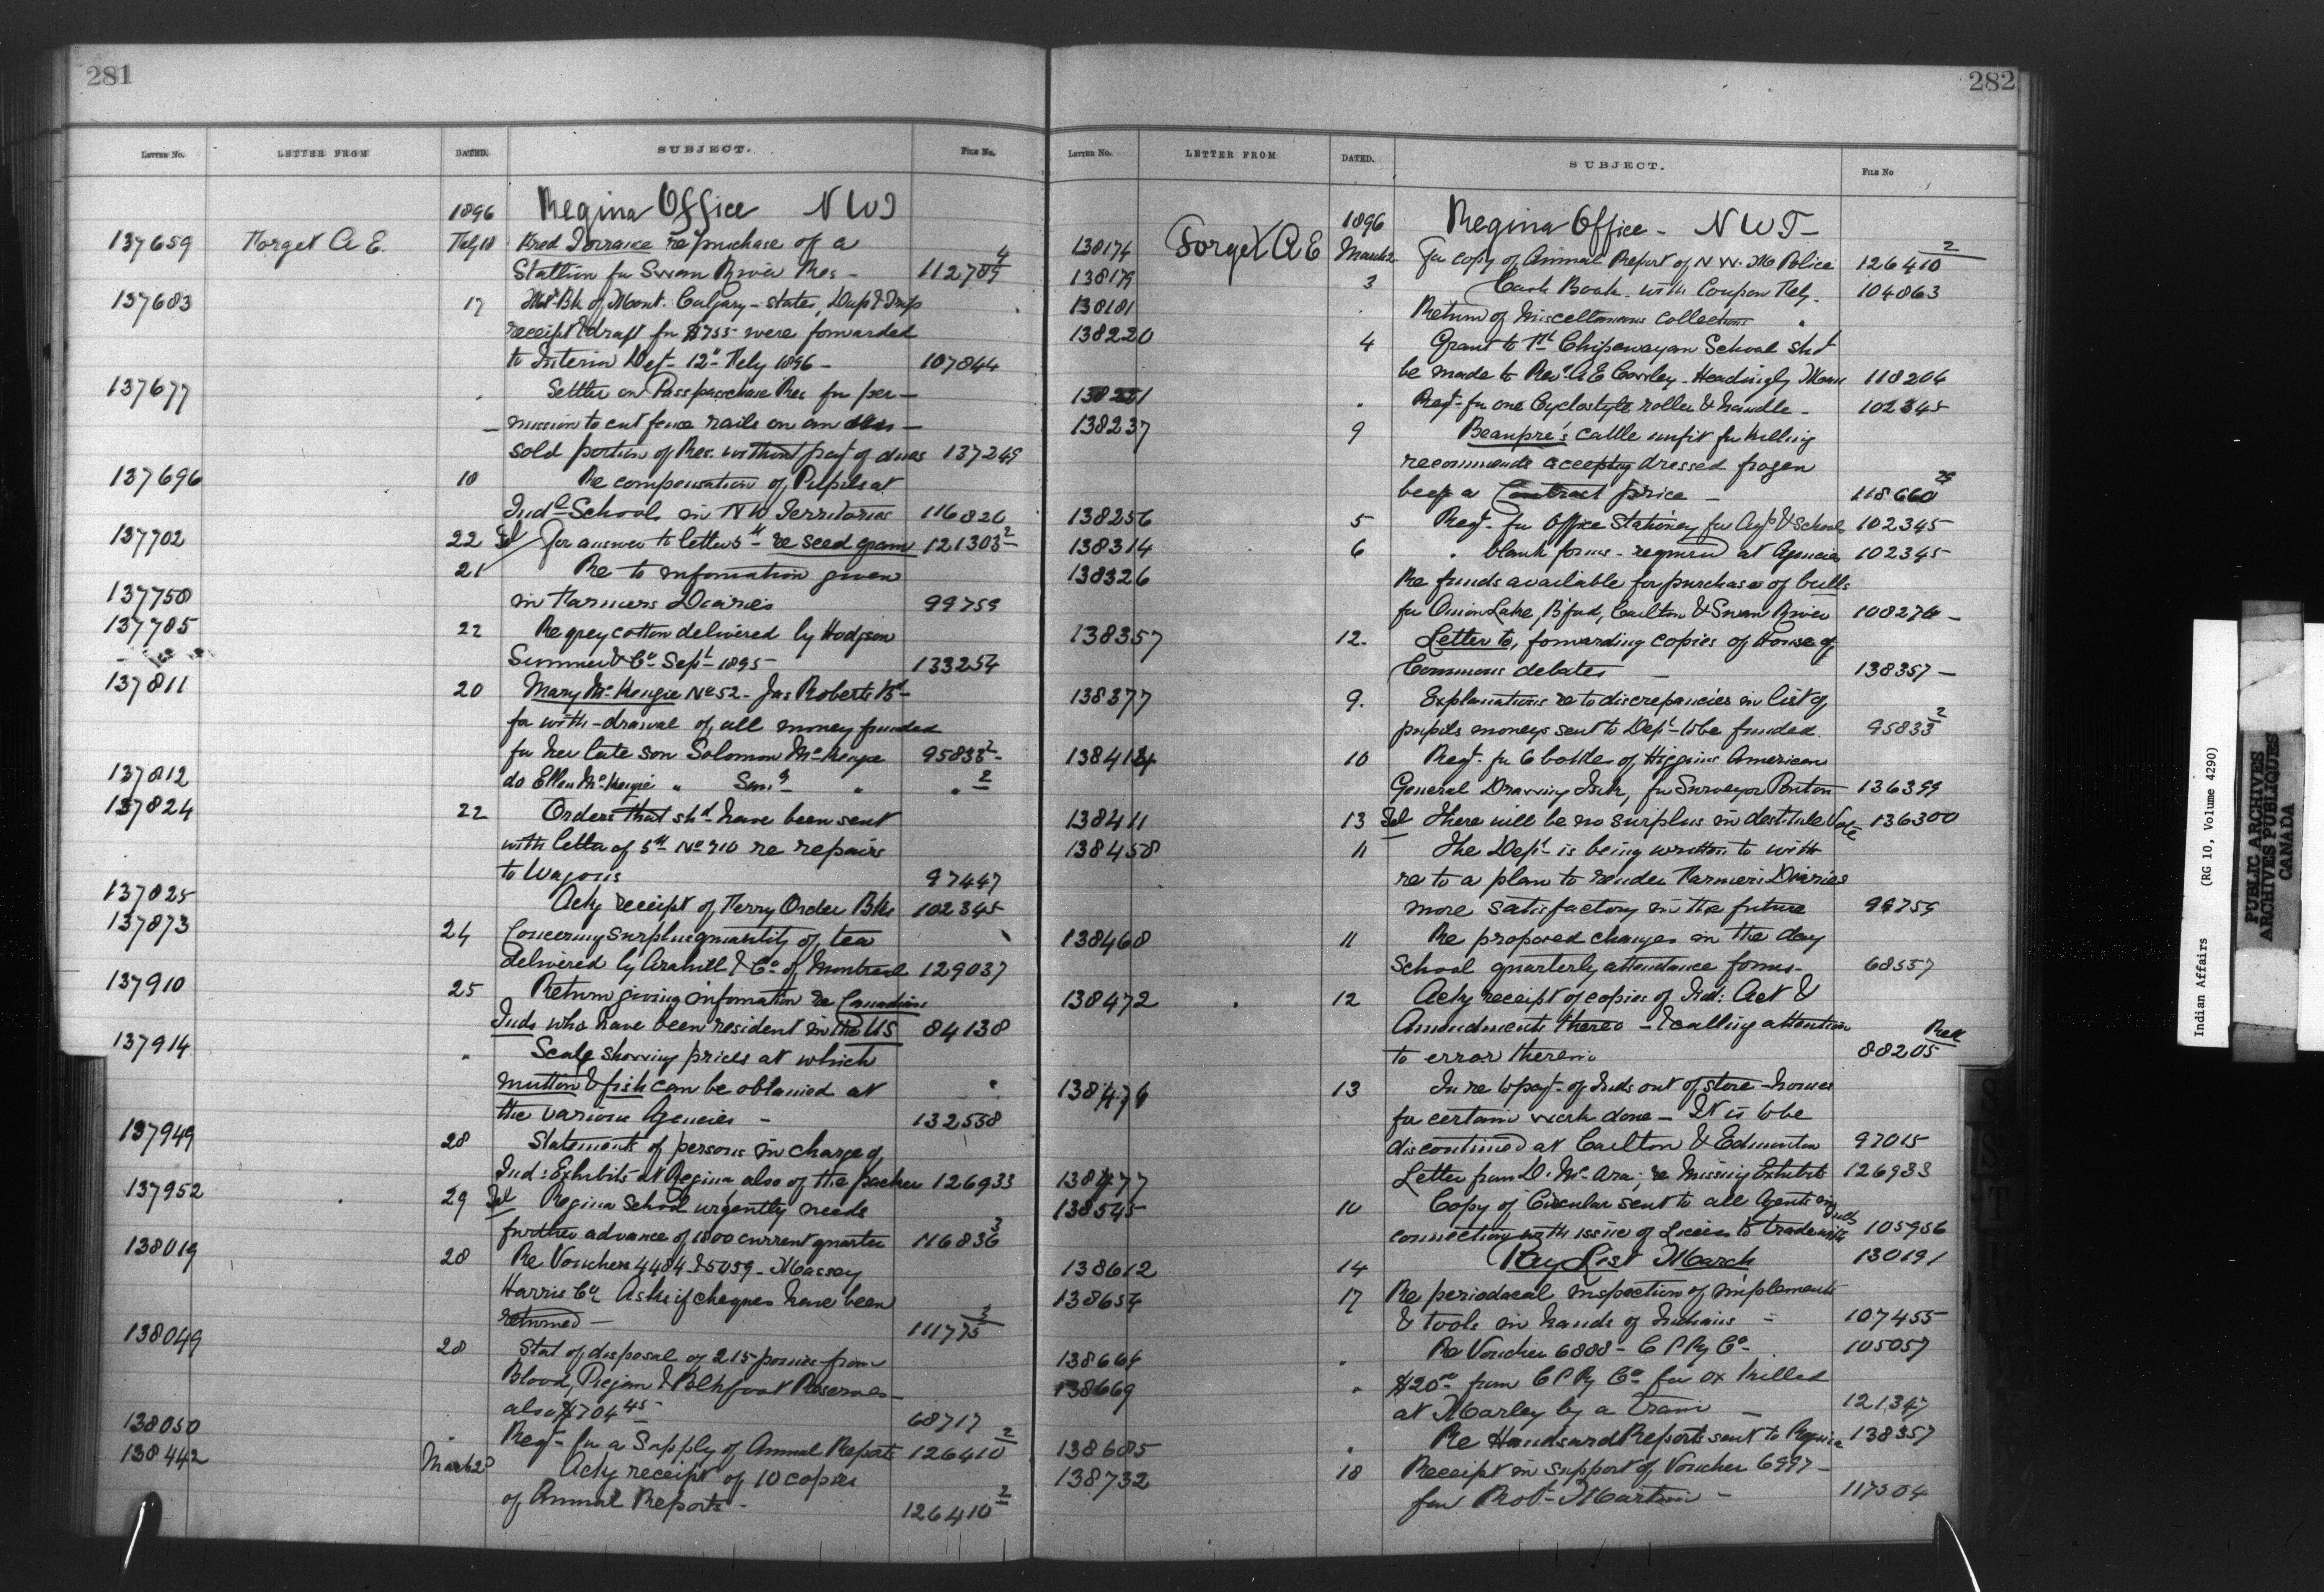 281
LETTER NO. LETTER FROM DATED. SUBJECT. FILE NO.
1896 Regina Office NWT
137659 Forget A E. Feby 18 Fred Torrance re purchase of a
Stallion for Swan River Res - 112789 4
137683 17 Bk of Mont. Calgary - states, Dup &
receipt & draft for $755 were forwarded
to Interior Dept - 12" Feby 1896 - 107844
137677 " Settler on Passpasschase Res for per-
mission to cut fence rails on an
sold portion of Res. without payt of dues 137249
137696 18 Re compensation of Pupils at
Indl Schools in NW Territories 116826
137702 22 Tel For answer to letter 5th re seed grain 121303 2
137758 21 Re to information given
in Farmers Diaries 99759
137785 22 Re grey cotton delivered by Hodgson
Sumner & Co Sept 1895 - 133254
137811 20 Mary McKenzie No 52 - Jas Roberts Bd -
for with-drawal of all money funded
for her late son Solomon McKenzie 95833 2
137812 do Ellen McKenzie " " " 2
137824 22 Orders that shd have been sent
with letter of 5th No 710 re repairs
to Wagons 97447
137825 Ackg receipt of Ferry Order Bks 102345
137873 24 Concerning surplus quantity of tea
delivered by & Co of Montreal 129037
137910 25 Return giving information re Canadian
Inds who have been resident in the US 84138
137914 " Scale showing prices at which
mutton & fish can be obtained at
the various Agencies - 132558
137949 28 Statements of persons in charge of
Ind: Exhibits at Regina also of the packer 126933
137952 29 Tel Regina School urgently needs
further advance of 1800 current quarter 116836 3
138019 28 Re Vouchers 4484 & 5059 - Massey
Harris Co Asks if cheques have been
returned - 111775 3
138049 28 Stat of disposal of 215 ponies from
Blood, Piegan & Blkfoot Reserves -
also $704 45 - 68717
138050 " Reqt for a Supply of Annual Reports 126410 2
138442 March 28 Ackg receipt of 10 copies
of Annual Reports - 126410 2
282
LETTER NO. LETTER FROM DATED. SUBJECT. FILE NO
1896 Regina Office - NWT -
138174 Forget A E March 2 For copy of Annual Report of N.W. M Police 126410 2
138179 3 Cash Book with Coupon Feby. 104863
138181 " Return of Miscellaneous collections "
138220 4 Grant to Ft Chipewayan School shd
be made to Revd Headingly Man 118204
138221 " Reqt for one Cyclostyle roller & handle - 102345
138237 9 Beaupre's cattle unfit for killing
recommends accepting dressed frozen
beef a Contract price - 118660
138256 5 Reqt for Office Stationery for Agys & Schools 102345
138314 6 " blank forms - required at Agencies 102345
138326 Re funds available for purchase of bulls
for Onion Lake, B'ford, Carlton & Swan River 108276 -
138357 12. Letter to, forwarding copies of House of
Commons debates - 138357 -
138377 9. Explanations re to discrepancies in list of
pupils moneys sent to Dept to be funded. 95833 2
138414 10 Reqt for 6 bottles of Higgins American
General Drawing Ink, for Surveyor Ponton 136399
138411 13 Tel There will be no surplus in destitute Vote 136300
138458 11 The Dept is being written to with
re to a plan to render Farmers Diaries
more satisfactory in the future 99759
138468 11 Re proposed changes in the day
School quarterly attendance forms - 68557
138472 12 Ackg receipt of copies of Ind: Act &
Amendments thereo - & calling attention
to error therein 88205
138476 13 In re to payt of Inds out of store-houses
for certain work done - It is to be
discontinued at Carlton & Edmonton 97015
138477 Letter from D. McAra; re Missing Exhibits 126933
138545 10 Copy of Circular sent to all Agents in
connection with issue of Licenses to trade with Inds 105956
138612 14 Pay List March 130191
138654 17 Re periodacal inspection of implements
& tools in hands of Indians - 107455
138664 " Re Voucher 6888 - C P Ry Co 105057
138669 " $20 00 from C P Ry Co for ox killed
at Morley by a train - 121347
138685 " Re Handsard Reports sent to Regina 138357
138732 18 Receipt in support of Voucher 6997 -
for Robt Martin - 117504
Indian Affairs (RG 10, Volume 4290)
PUBLIC ARCHIVES
ARCHIVES PUBLIQUES
CANADA